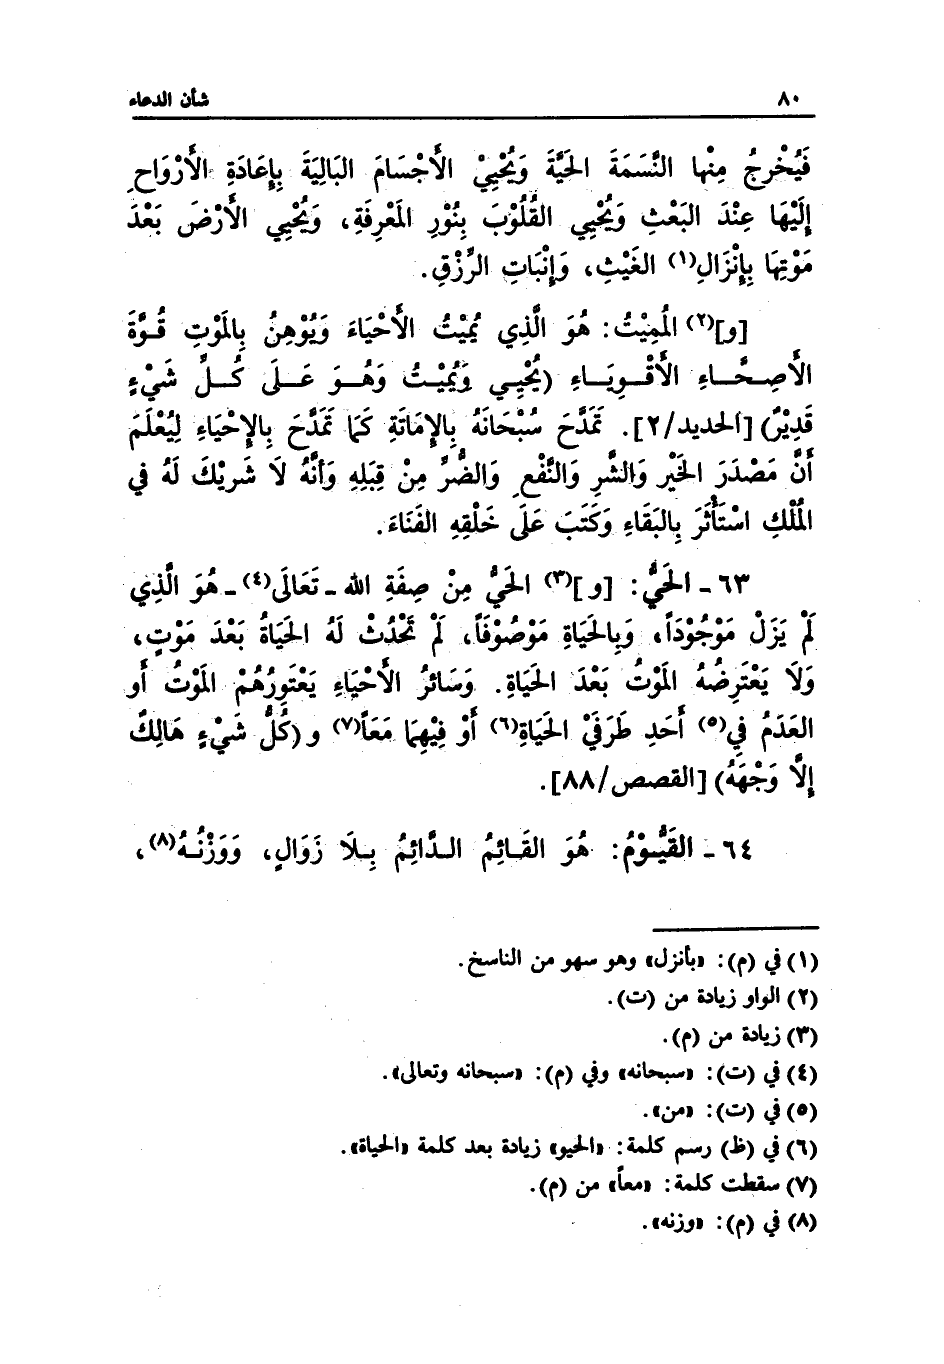 ٨٠ شأن الدعاء
فَيُخْرِجُ مِنْها النَّسَمَةَ الحَيَّةَ وَيُحْيِيْ الأَجْسَامَ البَالِيَةَ بِإِعَادَةِ الأَرْوَاحِ
إِلَيْهَا عِنْدَ البَعْثِ وَيُحْيِي القُلُوْبَ بِنُوْرِ المَعْرِفَةِ، وَيُحْيِي الأَرْضَ بَعْدَ
مَوْتِهَا بِإِنْزَالِ(١) الغَيْثِ، وَإِنْبَاتِ الرِّزْقِ.
[و](٢) المُمِيْتُ: هُوَ الَّذِي يُمِيْتُ الأَحْيَاءَ وَيُوْهِنُ بِالمَوْتِ قُوَّةَ
الأَصِحَّاءِ الأَقْوِيَاءِ (يُحْيِي وَيُمِيْتُ وَهُوَ عَلَى كُلِّ شَيْءٍ
قَدِيْرٌ) [الحديد/٢]. تَمَدَّحَ سُبْحَانَهُ بِالإِمَاتَةِ كَمَا تَمَدَّحَ بِالإِحْيَاءِ لِيُعْلَمَ
أَنَّ مَصْدَرَ الخَيْرِ وَالشَّرِ وَالنَّفْعِ وَالضُّرِّ مِنْ قِبَلِهِ وَأَنَّهُ لَا شَرِيْكَ لَهُ في
المُلْكِ اسْتَأْثَرَ بِالبَقَاءِ وَكَتَبَ عَلَى خَلْقِهِ الفَنَاءَ.
٦٣ ـ الحَيُّ: [و](٣) الحَيُّ مِنْ صِفَةِ الله ـ تَعَالَى(٤) ـ هُوَ الَّذِي
لَمْ يَزَلْ مَوْجُوْدَاً، وَبِالحَيَاةِ مَوْصُوْفَاً، لَمْ تَحْدُثْ لَهُ الحَيَاةُ بَعْدَ مَوْتٍ،
وَلَا يَعْتَرِضُهُ المَوْتُ بَعْدَ الحَيَاةِ. وَسَائرُ الأَحْيَاءِ يَعْتَوِرُهُمْ المَوْتُ أَو
العَدَمُ فِي(٥) أَحَدِ طَرَفَيْ الحَيَاةِ(٦) أَوْ فِيْهِمَا مَعَاً(٧) و (كُلُّ شَيْءٍ هَالِكٌ
إِلَّا وَجْهَهُ) [القصص/٨٨].
٦٤ ـ القَيُّوْمُ: هُوَ القَائِمُ الدَّائِمُ بِلَا زَوَالٍ، وَوَزْنُهُ(٨)،
(١) في (م): «بأنزل» وهو سهو من الناسخ.
(٢) الواو زيادة من (ت).
(٣) زيادة من (م).
(٤) في (ت): «سبحانه» وفي (م): «سبحانه وتعالى».
(٥) في (ت): «من».
(٦) في (ظ) رسم كلمة: «الحيو» زيادة بعد كلمة «الحياة».
(٧) سقطت كلمة: «معاً» من (م).
(٨) في (م): «وزنه».